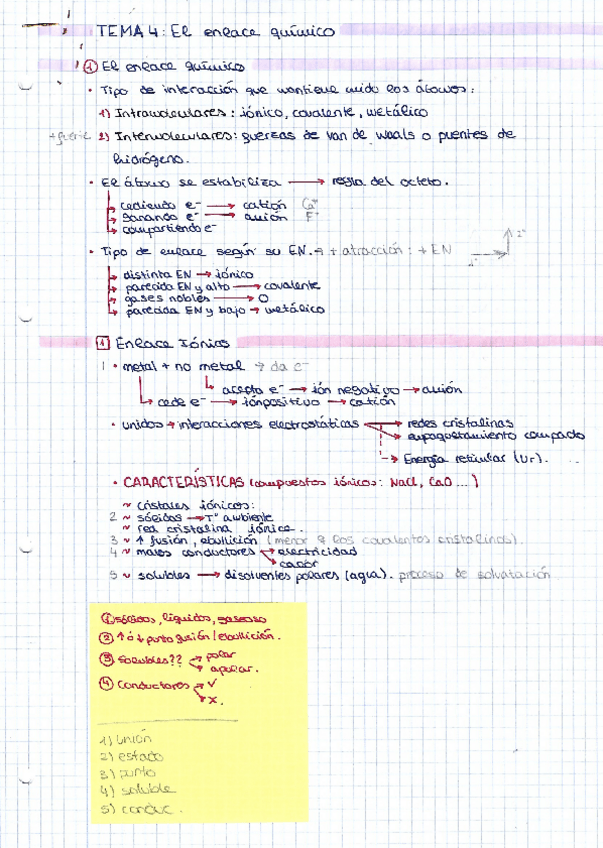 TEMA 4: El enlace químico
① El enlace químico
• Tipo de interacción que mantiene unido los átomos:
1) Intramoleculares: iónico, covalente, metálico
+ fuerte 2) Intermoleculares: fuerzas de van de waals o puentes de
hidrógeno.
• El átomo se estabiliza → regla del octeto.
cediendo e⁻ → catión
ganando e⁻ → anión F⁻
compartiendo e⁻
• Tipo de enlace según su EN. → + atracción: + EN
distinta EN → iónico
parecida EN y alto → covalente
gases nobles → 0
parecida EN y bajo → metálico
1 Enlace Iónico
1 • metal + no metal → da e⁻
acepta e⁻ → ión negativo → anión
cede e⁻ → ión positivo → catión
• unidos → interacciones electrostáticas → redes cristalinas
→ empaquetamiento compacto
→ Energía reticular (Ur).
• CARACTERÍSTICAS (compuestos iónicos: NaCl, CaO...)
~ cristales iónicos:
2 ~ sólidos → Tª ambiente
~ red cristalina iónica.
3 ~ ↑ fusión, ebullición (menor q los covalentes cristalinos).
4 ~ malos conductores → electricidad
→ calor
5 ~ solubles → disolventes polares (agua). proceso de solvatación
① sólidos, líquidos, gaseoso
② ↑ ó ↓ punto fusión / ebullición.
③ solubles?? → polar
→ apolar.
④ conductores → ✓
→ x.
1) Unión
2) estado
3) punto
4) soluble
5) conduc.